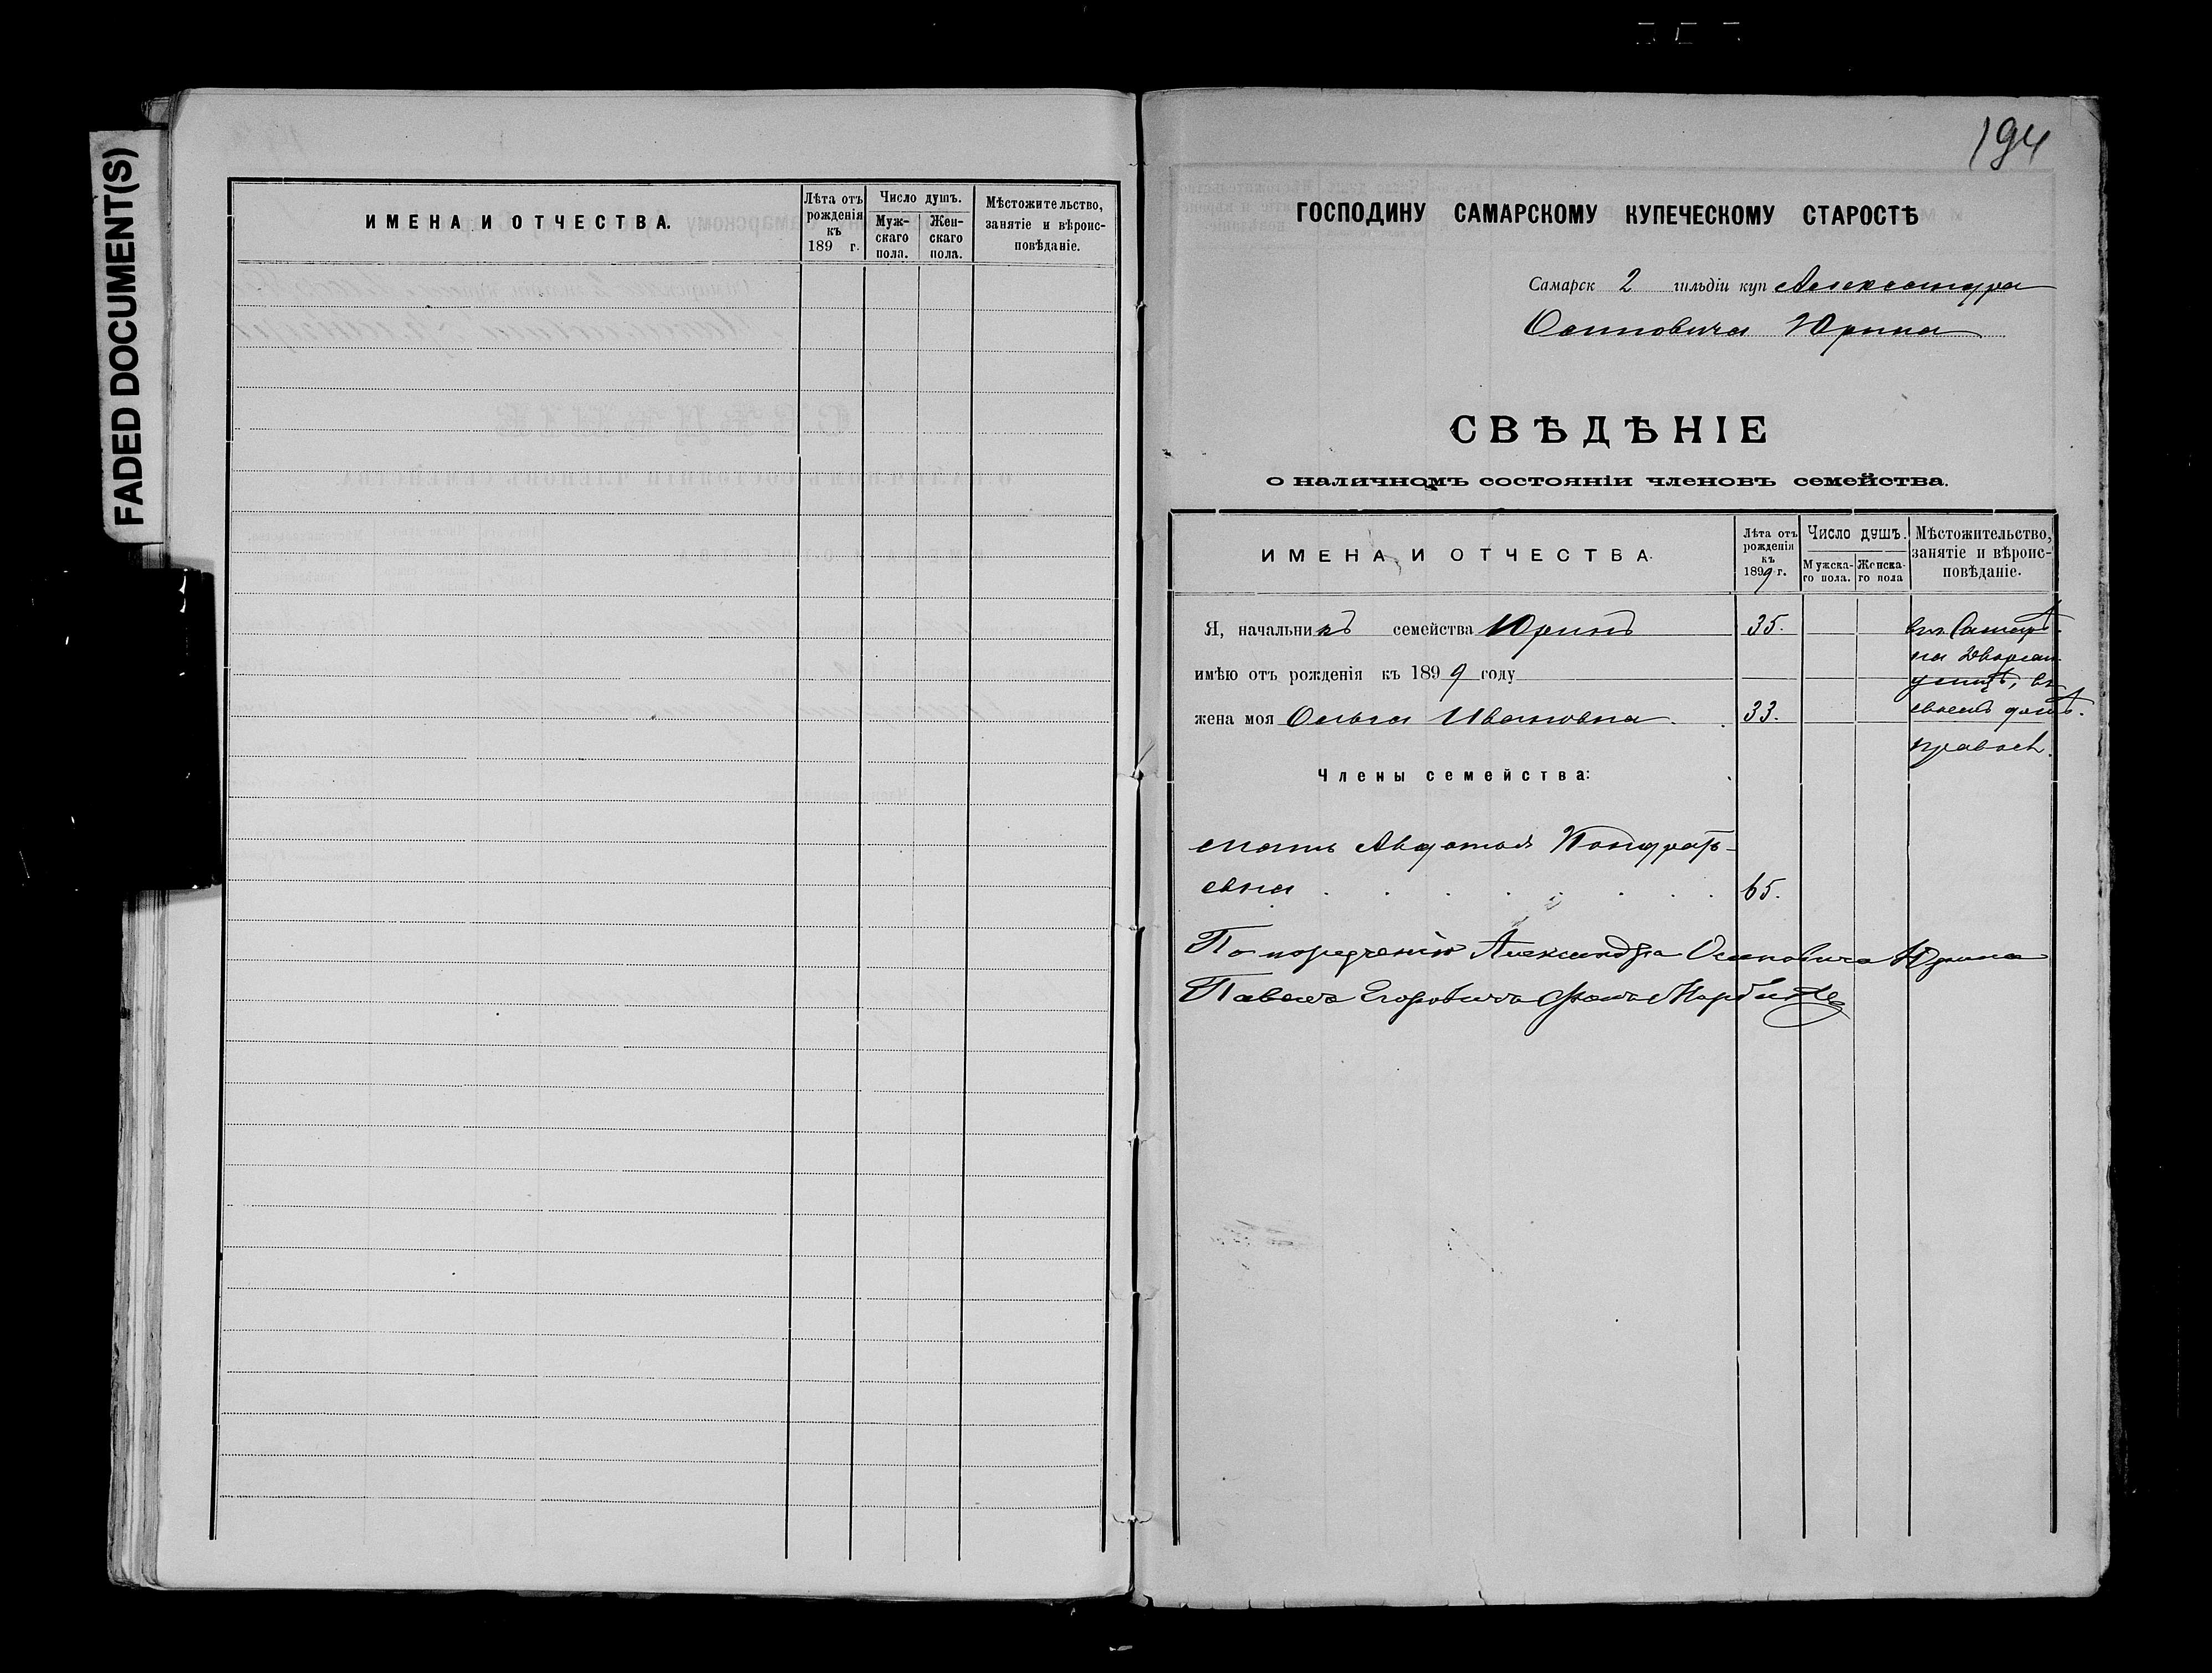 FADED DOCUMENT(S)
ИМЕНА И ОТЧЕСТВА.
Лѣта отъ рожденія къ 189 г.
Число душъ.
Мужскаго пола.
Женскаго пола.
Мѣстожительство, занятіе и вѣроисповѣданіе.
194
ГОСПОДИНУ САМАРСКОМУ КУПЕЧЕСКОМУ СТАРОСТѢ
Самарск 2 гильдіи куп Александра
Осиповича Юрина
СВѢДѢНІЕ
о наличномъ состояніи членовъ семейства.
ИМЕНА И ОТЧЕСТВА.
Лѣта отъ рожденія къ 1899 г.
Число душъ.
Мужскаго пола.
Женскаго пола
Мѣстожительство, занятіе и вѣроисповѣданіе.
Я, начальникъ семейства Юринъ 35.
имѣю отъ рожденія къ 1899 году
жена моя Ольга Ивановна. 33.
въ г. Самарѣ.
на Дворян.
улицѣ, въ
своемъ домѣ.
правосл.
Члены семейства:
мать Авдотья Кондрать-
евна 65.
По порученію Александра Осиповича Юрина
Павелъ Егоровичъ